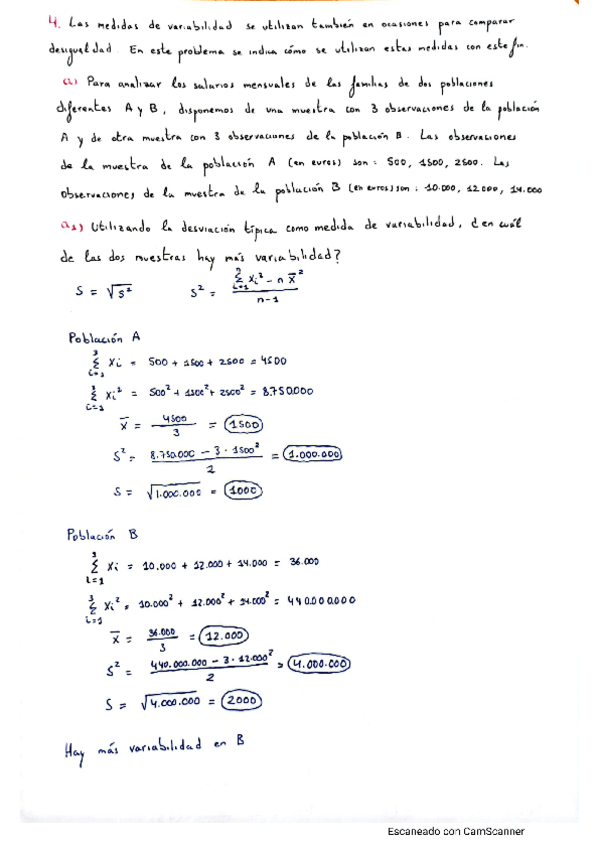 4. Las medidas de variabilidad se utilizan también en ocasiones para comparar
desigualdad. En este problema se indica cómo se utilizan estas medidas con este fin.
a) Para analizar los salarios mensuales de las familias de dos poblaciones
diferentes A y B, disponemos de una muestra con 3 observaciones de la población
A y de otra muestra con 3 observaciones de la población B. Las observaciones
de la muestra de la población A (en euros) son: 500, 1500, 2500. Las
observaciones de la muestra de la población B (en euros) son: 10.000, 12.000, 14.000
a1) Utilizando la desviación típica como medida de variabilidad, ¿en cuál
de las dos muestras hay más variabilidad?
S = √S² S² = (Σ_{i=1}^{3} Xi² - n X̄²) / (n-1)
Población A
Σ_{i=1}^{3} Xi = 500 + 1500 + 2500 = 4500
Σ_{i=1}^{3} Xi² = 500² + 1500² + 2500² = 8.750.000
X̄ = 4500 / 3 = 1500
S² = (8.750.000 - 3 · 1500²) / 2 = 1.000.000
S = √1.000.000 = 1000
Población B
Σ_{i=1}^{3} Xi = 10.000 + 12.000 + 14.000 = 36.000
Σ_{i=1}^{3} Xi² = 10.000² + 12.000² + 14.000² = 440.000.000
X̄ = 36.000 / 3 = 12.000
S² = (440.000.000 - 3 · 12.000²) / 2 = 4.000.000
S = √4.000.000 = 2000
Hay más variabilidad en B
Escaneado con CamScanner